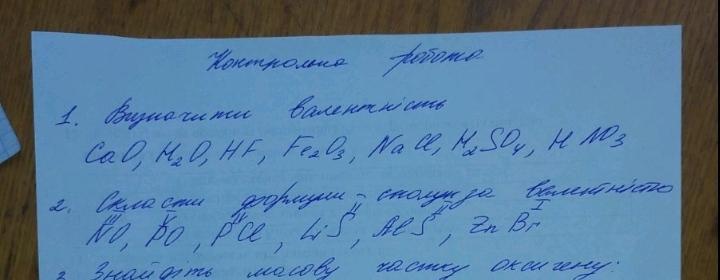 Контрольна робота
1. Визначити валентність
CaO, H₂O, HF, Fe₂O₃, NaCl, H₂SO₄, HNO₃
2. Скласти формули сполук за валентністю
NO, PO, PCl, LiS, AlS, ZnBr
3. Знайдіть масову частку оксигену: